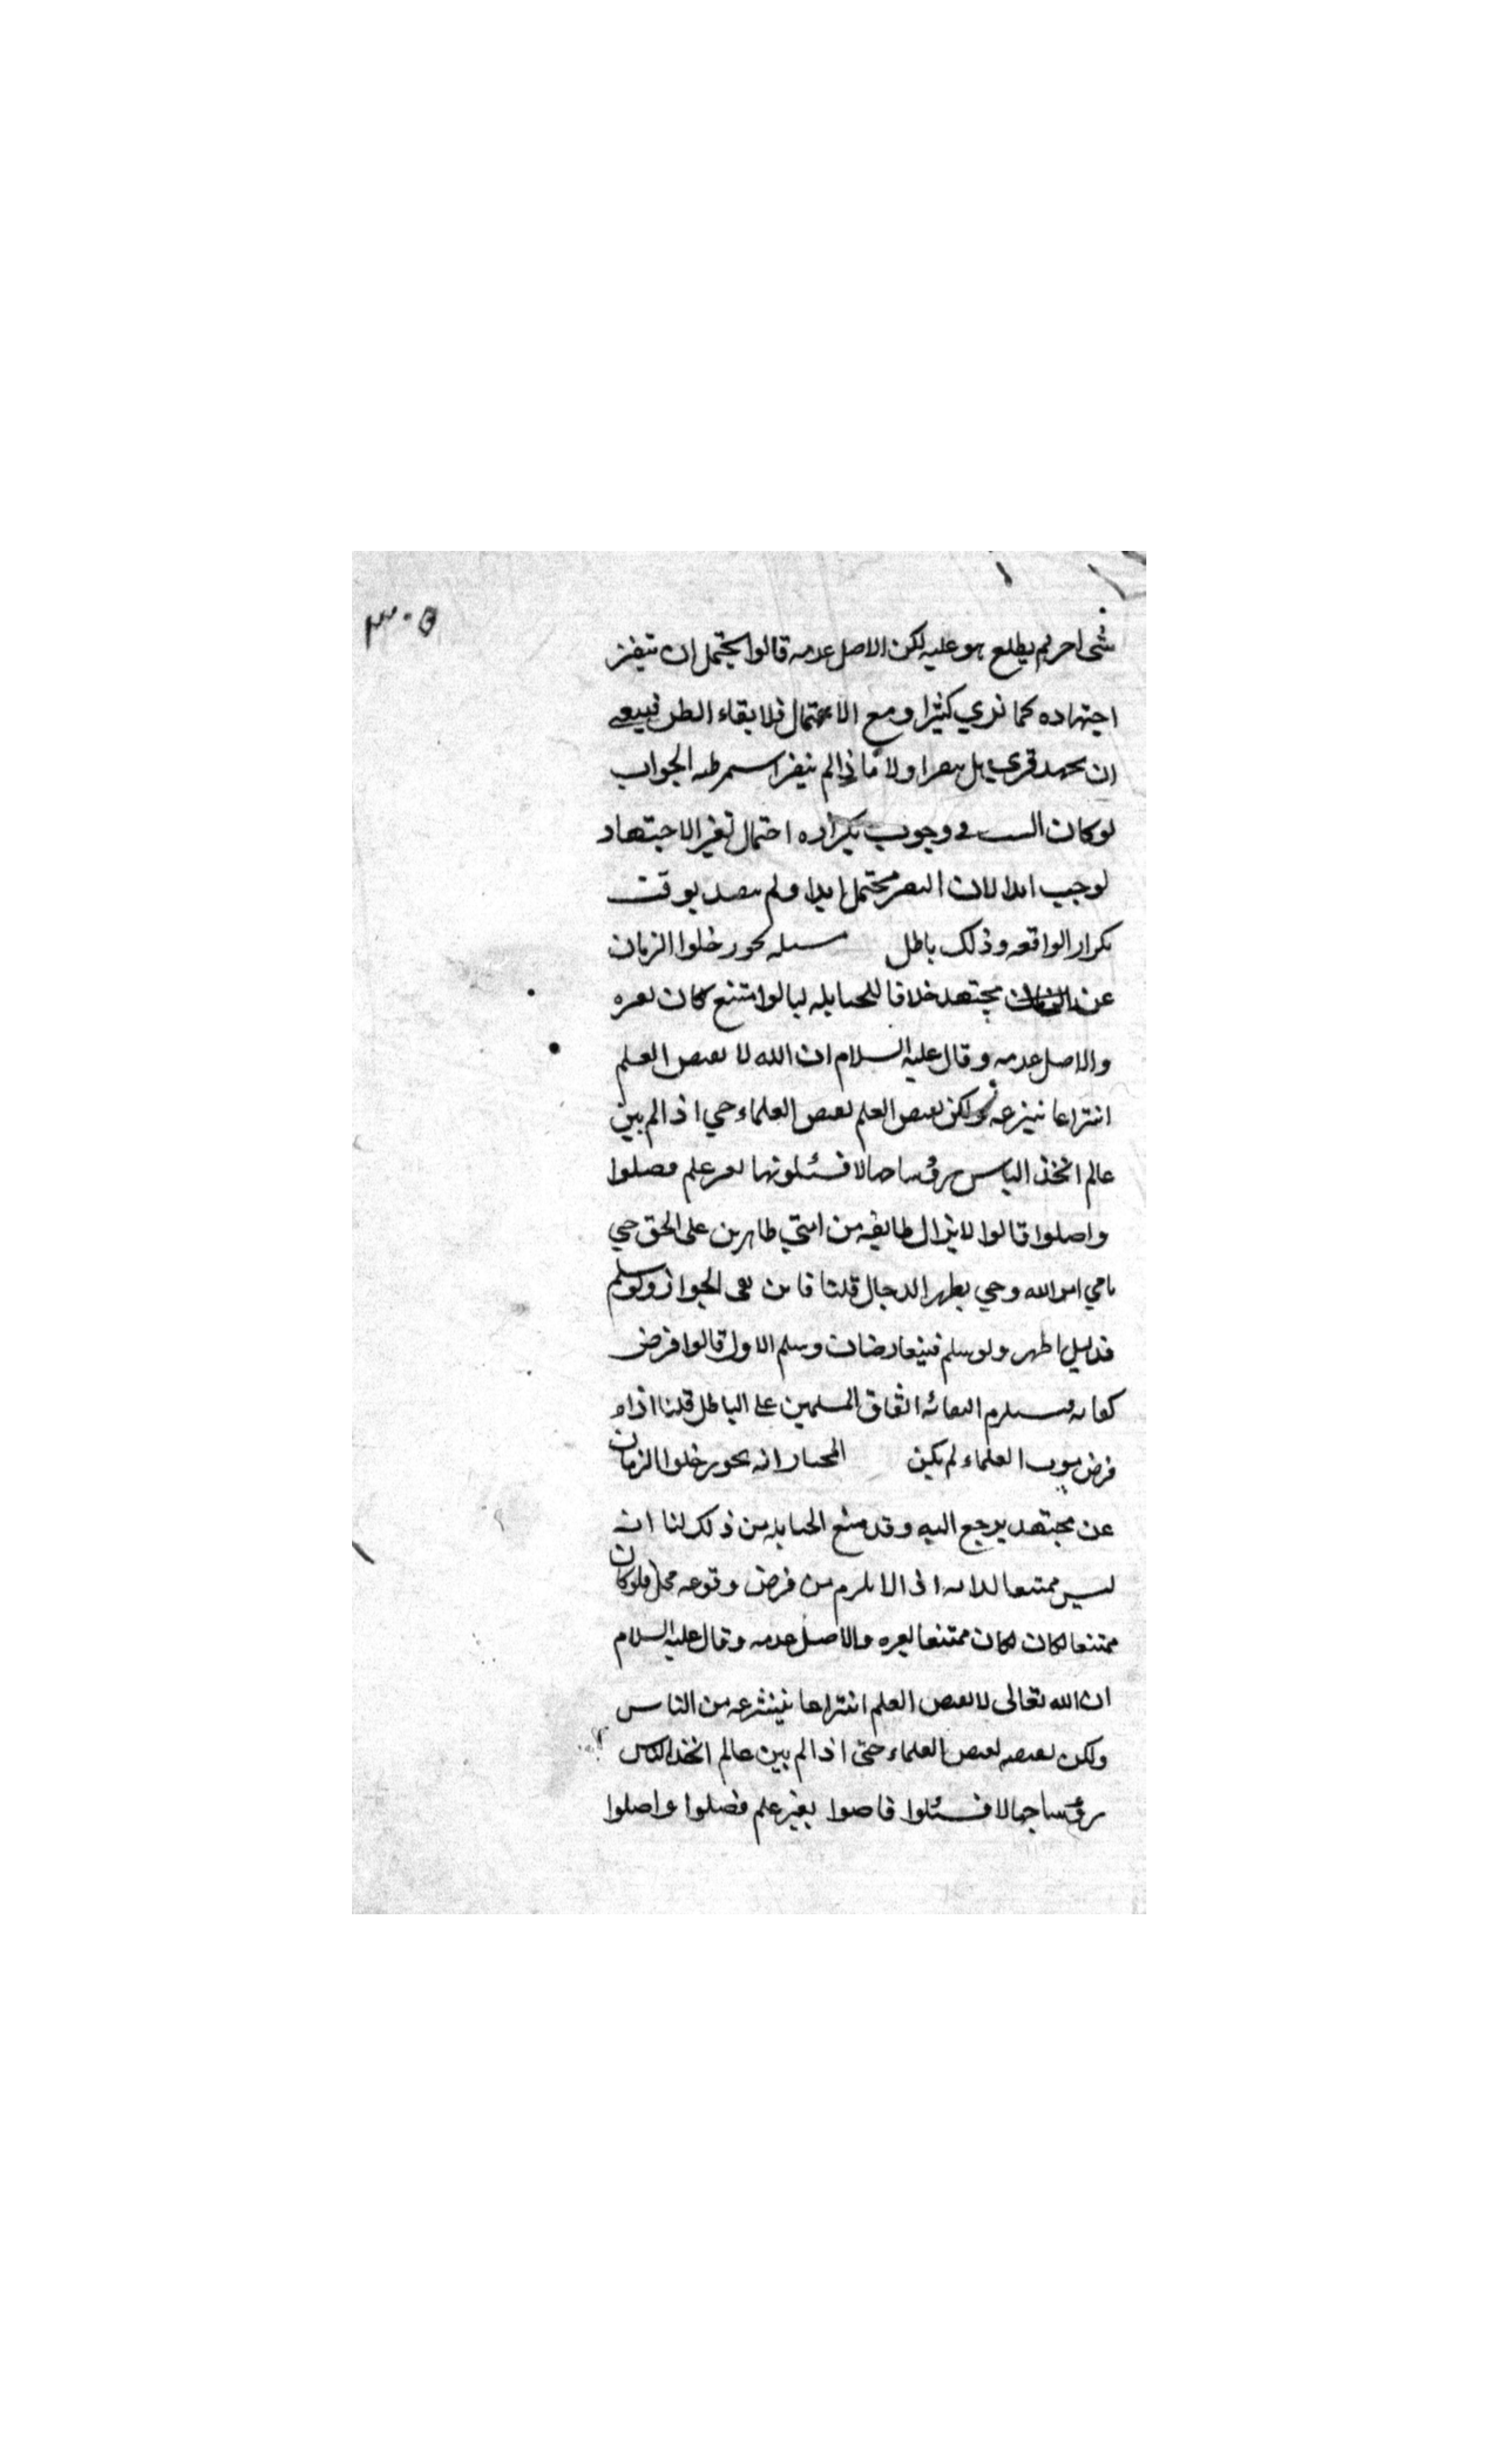 ٣٠٥
شى اخر لم يطلع هو عليه لكن الاصل عدمه قالوا يحتمل ان يتغير
اجتهاده كما نرى كثيرا ومع الاحتمال فلا بقاء الظن فينبغى
ان يجتهد فيرى هل يتغير اولا فاذا لم يتغير استمر ظنه الجواب
لو كان السبب فى وجوب تكراره احتمال تغير الاجتهاد
لوجب ابدا لان التغير محتمل ابدا ولم يتقيد بوقت
تكرار الواقعه وذلك باطل مسئله يجوز خلوا الزمان
عن مجتهد خلافا للحنابله لنا لو امتنع كان لغيره
والاصل عدمه وقال عليه السلام ان الله لا يقبض العلم
انتزاعا ينتزعه ولكن يقبض العلم بقبض العلماء حتى اذا لم يبق
عالم اتخذ الناس رؤسا جهالا فسئلو بغير علم فضلوا
واضلوا قالوا لا يزال طايفه من امتى ظاهرين على الحق حتى
ياتى امر الله وحتى يظهر الدجال قلنا فاين نفى الجواز ولو سلم
فدليل اظهر ولو سلم فيتعارضان وسلم الاول قالوا فرض
كفايه فيستلزم انتفائه اتفاق المسلمين على الباطل قلنا اذا
فرض موت العلماء لم يكن المختار انه يجوز خلوا الزمان
عن مجتهد يرجع اليه وقد منع الحنابله من ذلك لنا انه
ليس ممتنعا لذاته اذ لا يلزم من فرض وقوعه محال فلو كان
ممتنعا لكان لكان ممتنعا لغيره والاصل عدمه وقال عليه السلام
ان الله تعالى لا يقبض العلم انتزاعا ينتزعه من الناس
ولكن يقبضه بقبض العلماء حتى اذا لم يبق عالم اتخذ الناس
رؤسا جهالا فسئلوا فافتوا بغير علم فضلوا واضلوا